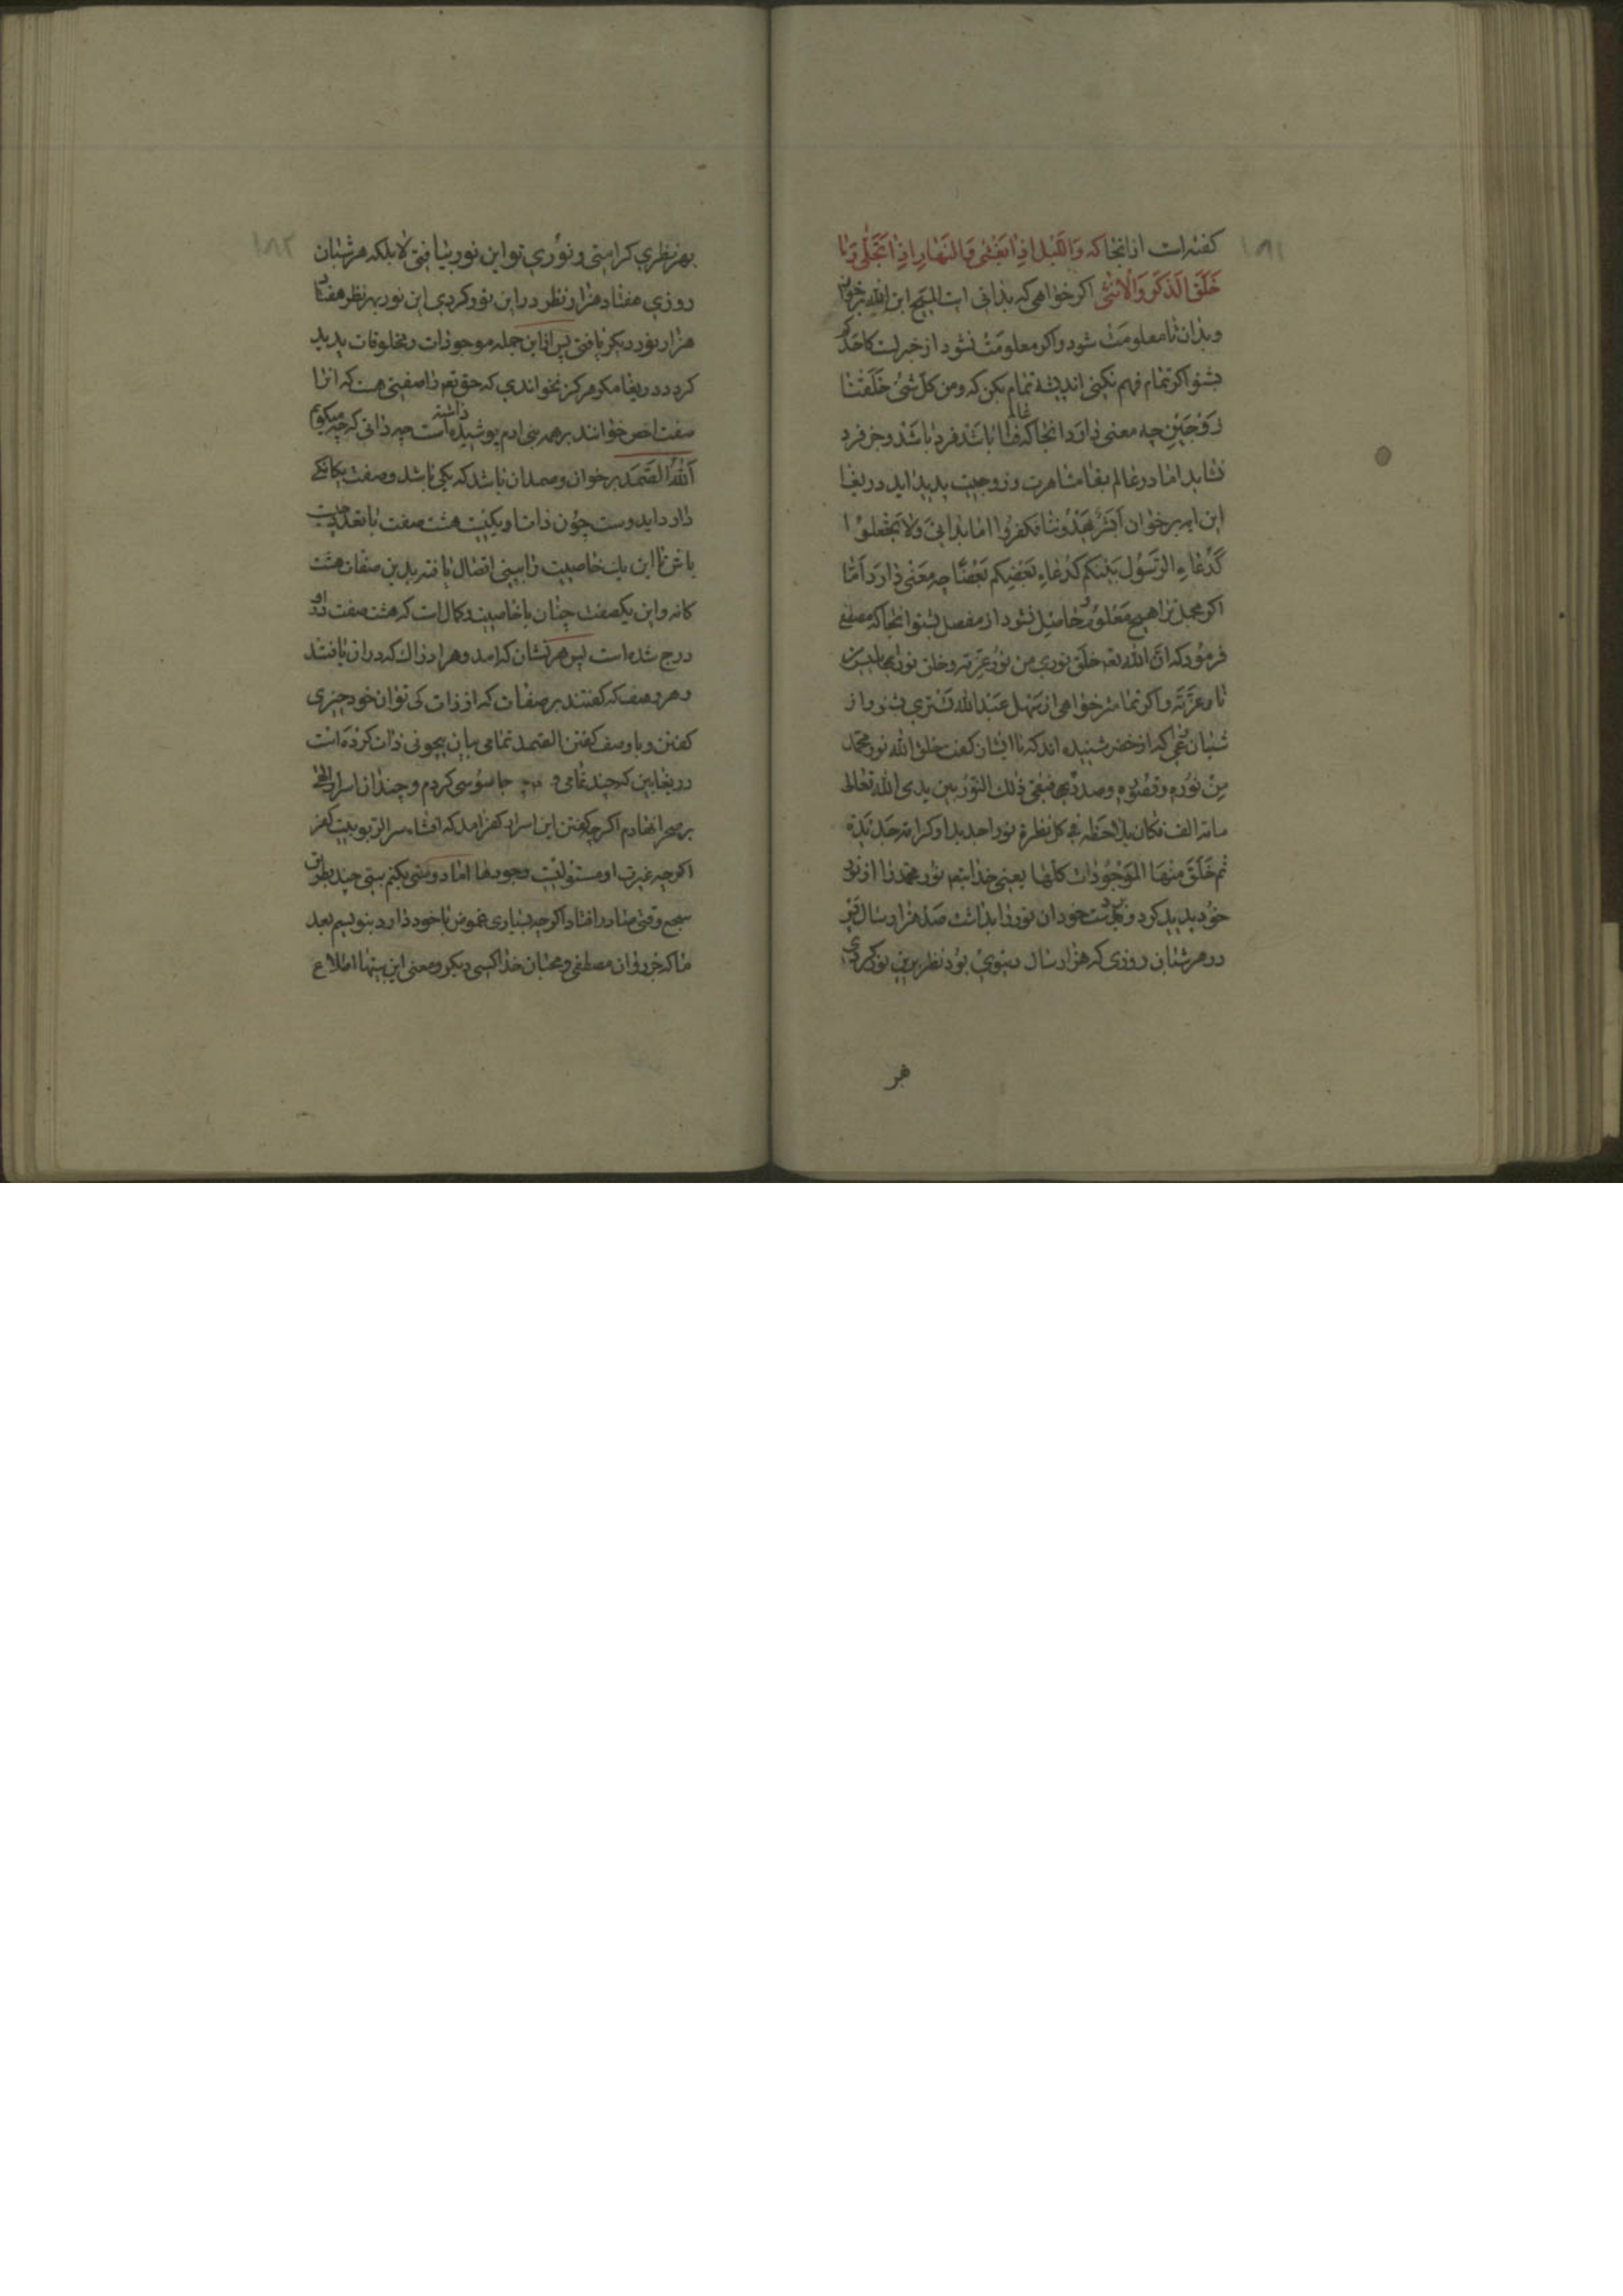 ۱۸۱
کفته‌است از انجا که وَاللَّیل اِذا یَغْشٰی وَالنَهارِ اِذا تَجَلّی وَمٰا
خَلَقَ الَذَکَر وَالْاُنثٰی اکر خواهی که بدانی المسیح ابن الله برخوان
وبدان تا معلومت شود واکر معلومت نشود از خبر لست کاحدکم
بشنو اکر تمام فهم نکنی اندیشه تمام بکن که ومن کل شیٔ خَلَقْنٰا
زَوْجَیْنِ چه معنی دارد انجا که عالم فنا باشد فرد باشد وجز فرد
نشاید اما در عالم بقا مشاهرت وزوجیت پدید اید دریغا
این ایه برخوان اَبَشَرٌ یَهْدُونَنا فکفروا اما بدانی وَلا تَجْعَلوْا
کَدُعٰاءِ الرَسُول بَیْنَکم کَدُعٰاءِ بَعْضِکم بَعْضًا چه مَعْنی دارَد اَمّا
اکر مجمل ترا هیچ مَعْلُوم وحاصِل نشود از مفصل بشنو انجا که مصطفی
فرمُود که انّ الله تعه خلَق نوری من نُور عِزّته وخلق نور ابلیس من
نار عزّته واکر تمامتر خواهی از سَهل عَبْدالله تستری بشنو واز
شیبان راعی که از خضر شنیده‌اند که با ایشان کفت خلق الله نور محمّد
مِنْ نُوره وصوّره وصدره فبقی ذلک النُورُ بین یدی الله تعالی
مائة الف فکان یلاحظه فی کل نظرة نور اجدیدا وکرامة جدیدة
ثم خَلَقَ مِنْهَا المَوْجُودات کلّها یعنی خدایتعه نور محمّد را از نور
خود پدید کرد وبر دست خود ان نور را بداشت صد هزار سال پس
در هر شبان روزی که هزار سال دنیوی بُود نظر برین نور کردی
هر
۱۸۲
بهر نظری کرامتی ونوُری تو این نور بیافتی لا بلکه هر شبان
روزی هفتاد هزار نظر در این نور کردی این نور بهر نظر هفتاد
هزار نور دیکر یافتی پس از این جمله موجودات ومخلوقات پدید
کرد دریغا مکر هرکز نخواندی که حق تعه را صفتی هست که انرا
صفت اخص خوانند بر همه بنی ادم پوشیده داشته است چه دانی که چه میکویم
اَللهُ الصَّمَد برخوان وصمد ان باشد که یکی باشد وصفت یکانکی
دارد ایدوست چون ذات او یکیست هشت صفت با تعدد چیست
باش تا این یک خاصیت را بینی اتصال یافته بدین صفات هشت
کانه واین یکصفت چنان با خاصیت وکمال است که هشت صفت در او
درج شده است پس هر نشان که امد وهر ادراک که دران یافتند
وهر وصف که کفتند بر صفات که از ذات کی توان خود چیزی
کفتن وبا وصف کفتن الصمد تمامی بیان بیچونی ذات کرده است
دریغا بین که چند تمامی و جاسُوسی کردم وچندان اسرار الهی
بر صحرا نهادم اکرچه کفتن این اسرار کفر امد که افشاء سر الربوبیت کفر
اکرچه غیرت او مستولیست وجودها اما دوستی بکنم بیتی چند بطریق
سجع وقتی صادر افتاد اکرچه بسیاری غموض با خود دارد بنویسم بعد
ما که جز روان مصطفی ومحبان خدا کسی دیکر ومعنی این بیتها اطلاع